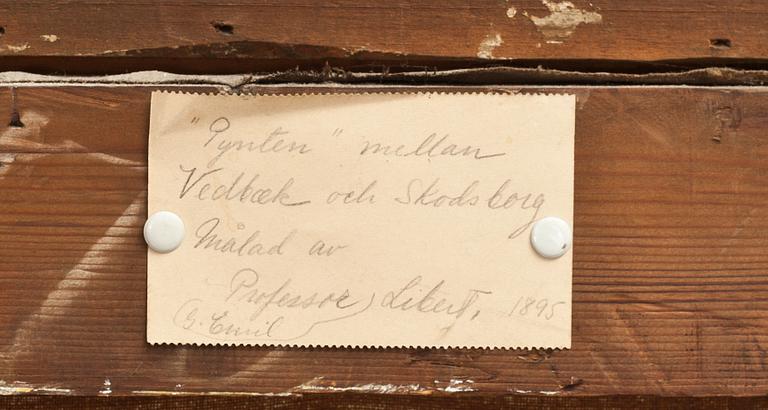 "Pynten" mellan
Vedbæk och Skodsborg
Målad av
Professor Libert, 1895
(G. Emil